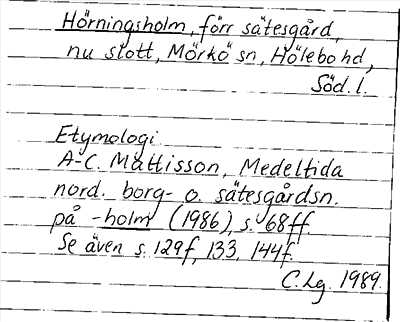 Hörningsholm, förr sätesgård,
nu slott, Mörkö sn, Hölebo hd,
Söd. l.
Etymologi
A-C. Mattisson, Medeltida
nord. borg- o. sätesgårdsn.
på -holm (1986), s. 68ff.
Se även s. 129f, 133, 144f.
C. Lg. 1989.